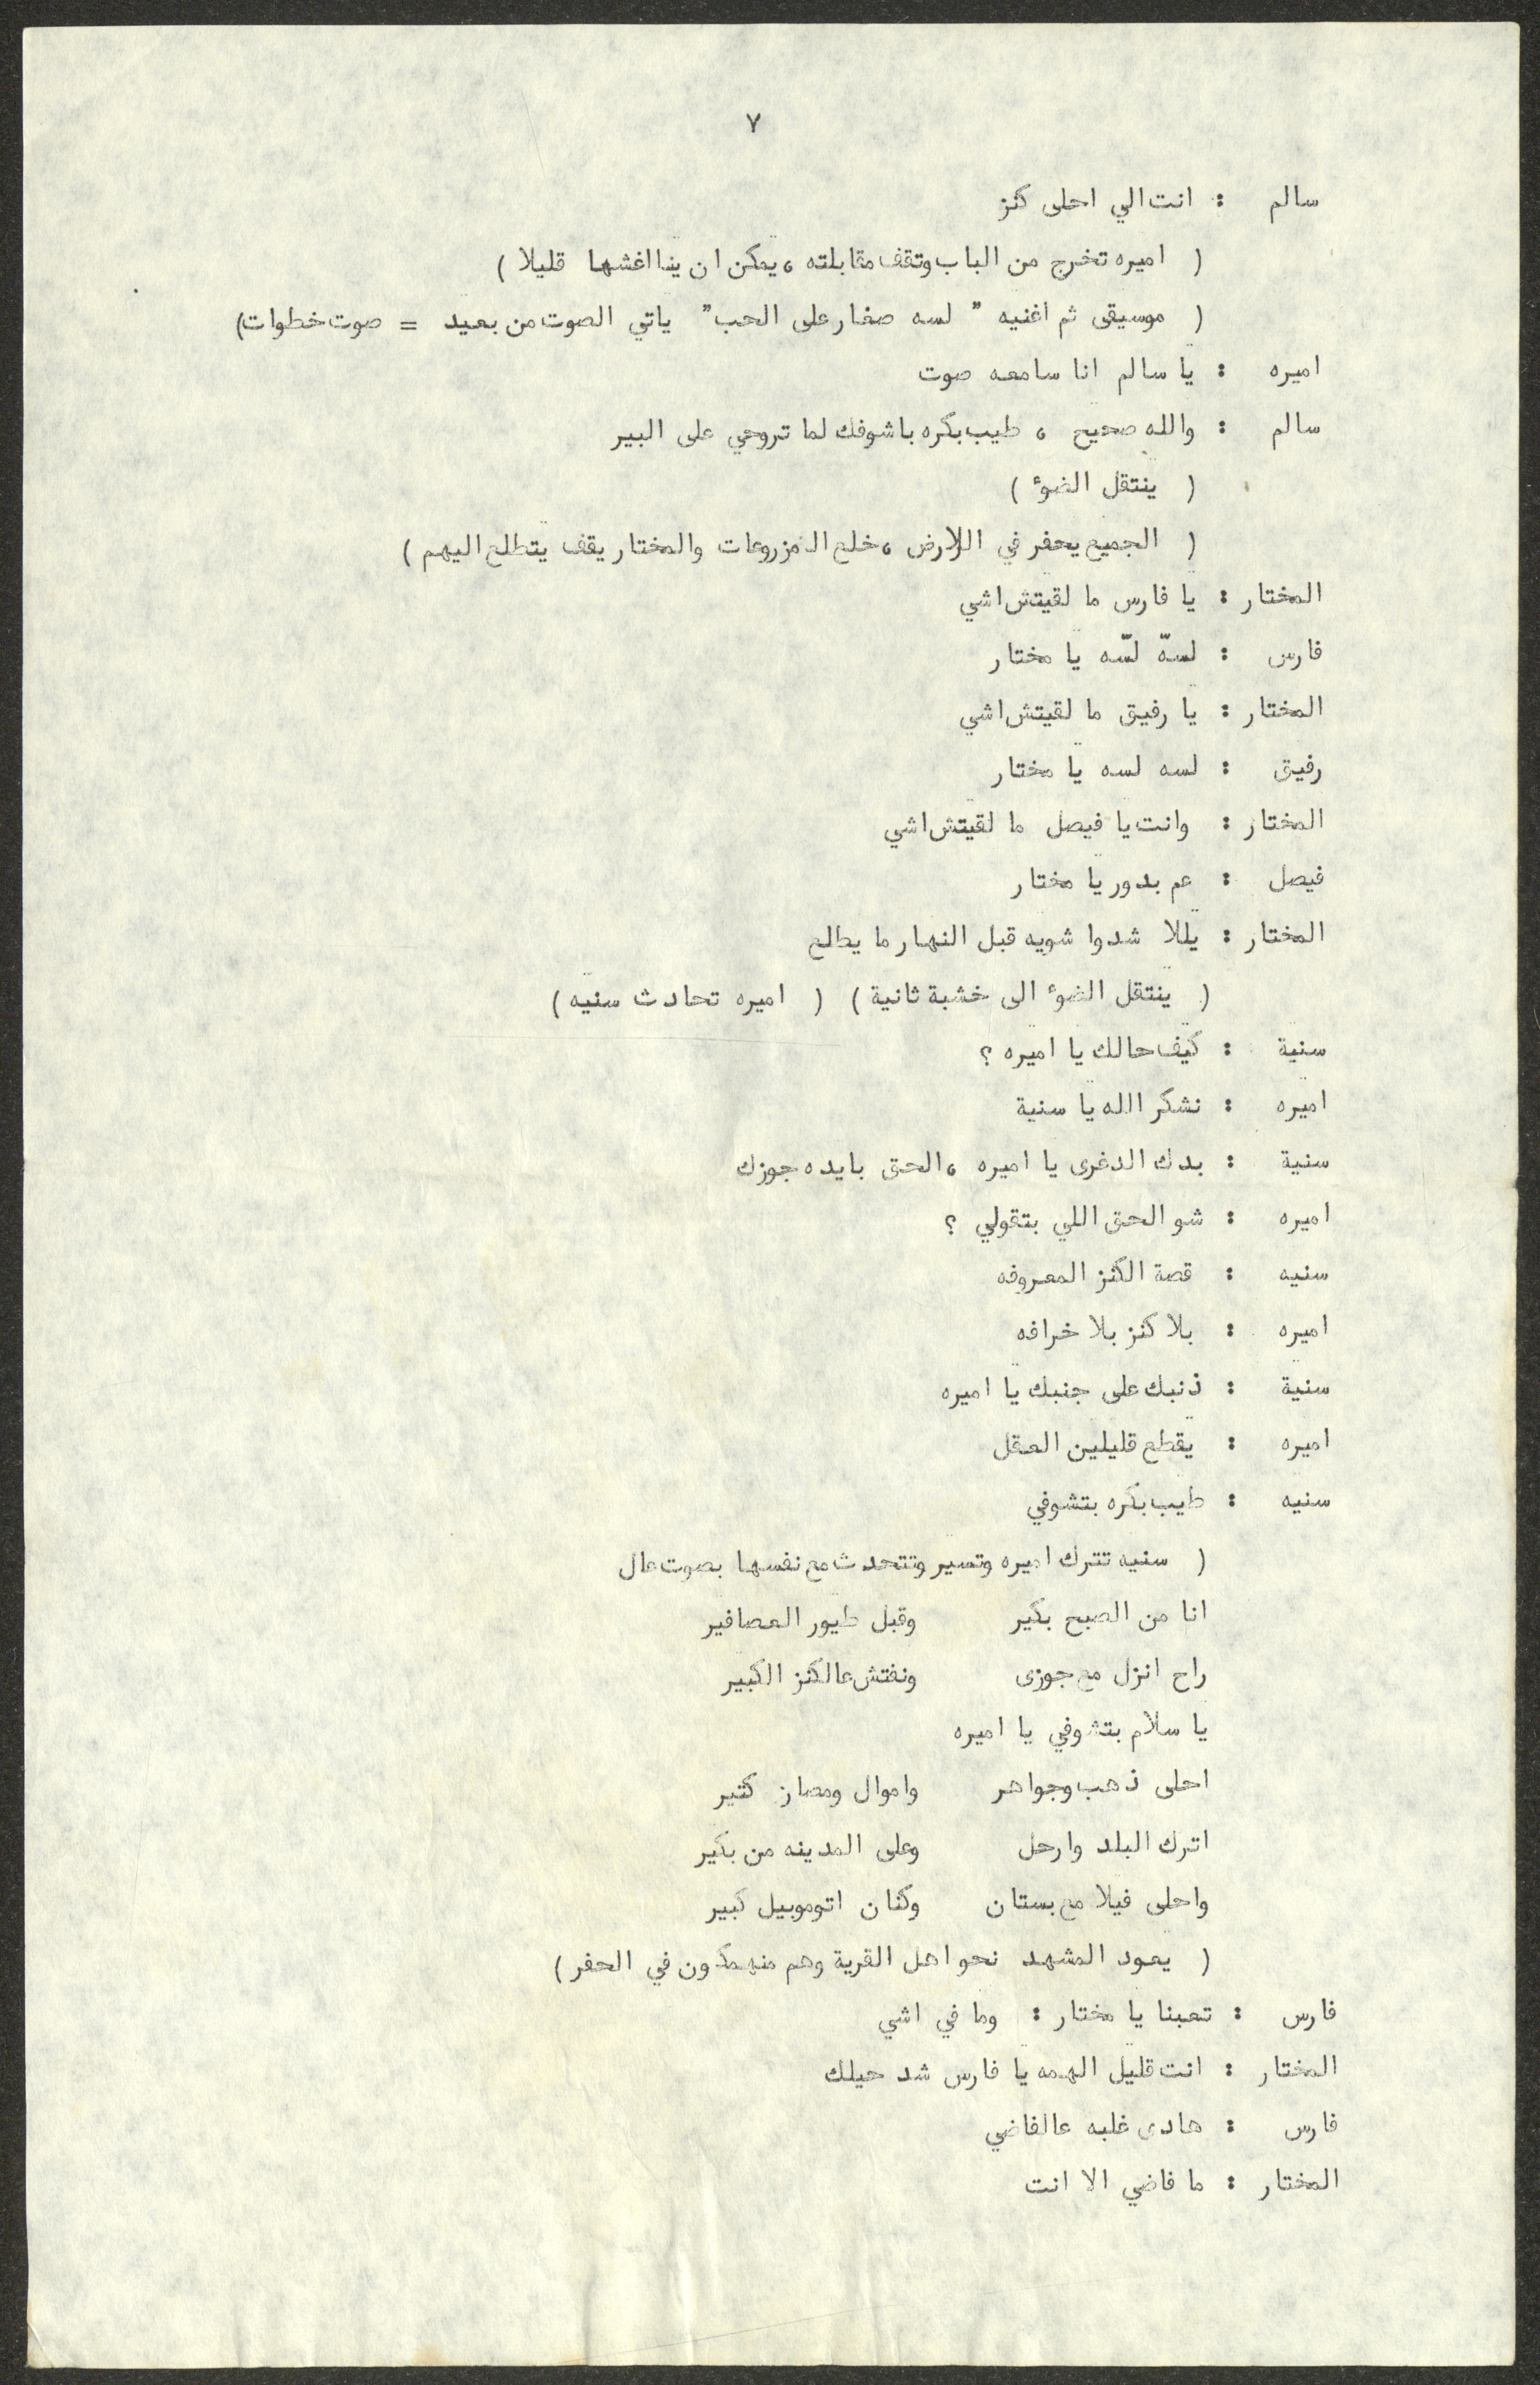 ٧
سالم : انت الي احلى كنز
( اميره تخرج من الباب وتقف مقابلته ، يمكن ان يناغشها قليلا )
( موسيقى ثم اغنيه " لسه صغار على الحب" ياتي الصوت من بعيد = صوت خطوات)
اميره : يا سالم انا سامعه صوت
سالم : والله صحيح ، طيب بكره باشوفك لما تروحي على البير
( ينتقل الضوء )
( الجميع يحفر في الارض ، خلع المزروعات والمختار يقف يتطلع اليهم )
المختار : يا فارس ما لقيتش اشي
فارس : لسهّ لسّه يا مختار
المختار : يا رفيق ما لقيتش اشي
رفيق : لسه لسه يا مختار
المختار : وانت يا فيصل ما لقيتش اشي
فيصل : عم بدور يا مختار
المختار : يللا شدوا شويه قبل النهار ما يطلع
( ينتقل الضوء الى خشبة ثانية ) ( اميره تحادث سنيه )
سنية : كيف حالك يا اميره ؟
اميره : نشكر الله يا سنية
سنية : بدك الدغرى يا اميره ، الحق بايده جوزك
اميره : شو الحق اللي بتقولي ؟
سنيه : قصة الكنز المعروفه
اميره : بلا كنز بلا خرافه
سنية : ذنبك على جنبك يا اميره
اميره : يقطع قليلين العقل
سنيه : طيب بكره بتشوفي
( سنيه تترك اميره وتسير وتتحدث مع نفسها بصوت عال
انا من الصبح بكير وقبل طيور العصافير
راح انزل مع جوزى ونفتش عالكنز الكبير
يا سلام بتشوفي يا اميره
احلى ذهب وجواهر واموال ومصار كتير
اترك البلد وارحل وعلى المدينه من بكير
واحلى فيلا مع بستان وكنان اتوموبيل كبير
( يعود المشهد نحو اهل القرية وهم منهمكون في الحفر )
فارس : تعبنا يا مختار : وما في اشي
المختار : انت قليل الهمه يا فارس شد حيلك
فارس : هادى غلبه عالفاضي
المختار : ما فاضي الا انت